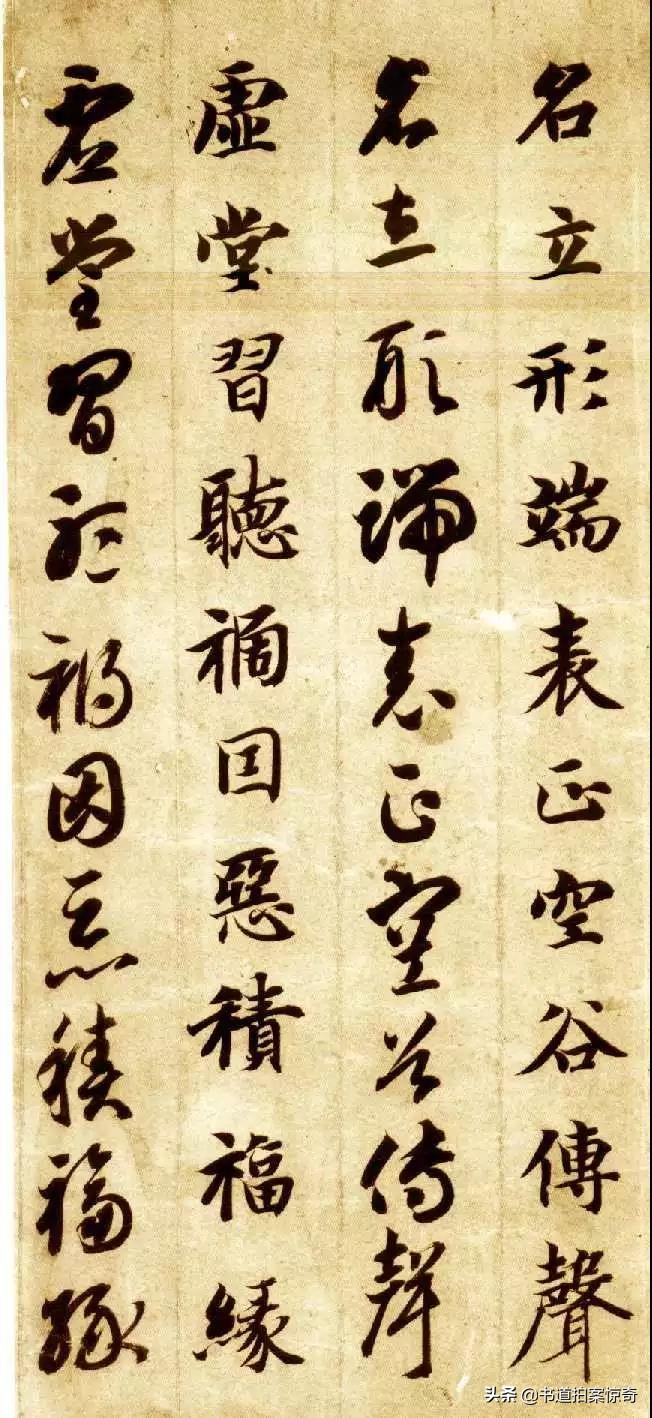 名立形端表正空谷傳聲
名立形端表正空谷传聲
虛堂習聽禍因惡積福緣
虛堂習聽禍因惡積福緣
头条 @书道拍案惊奇